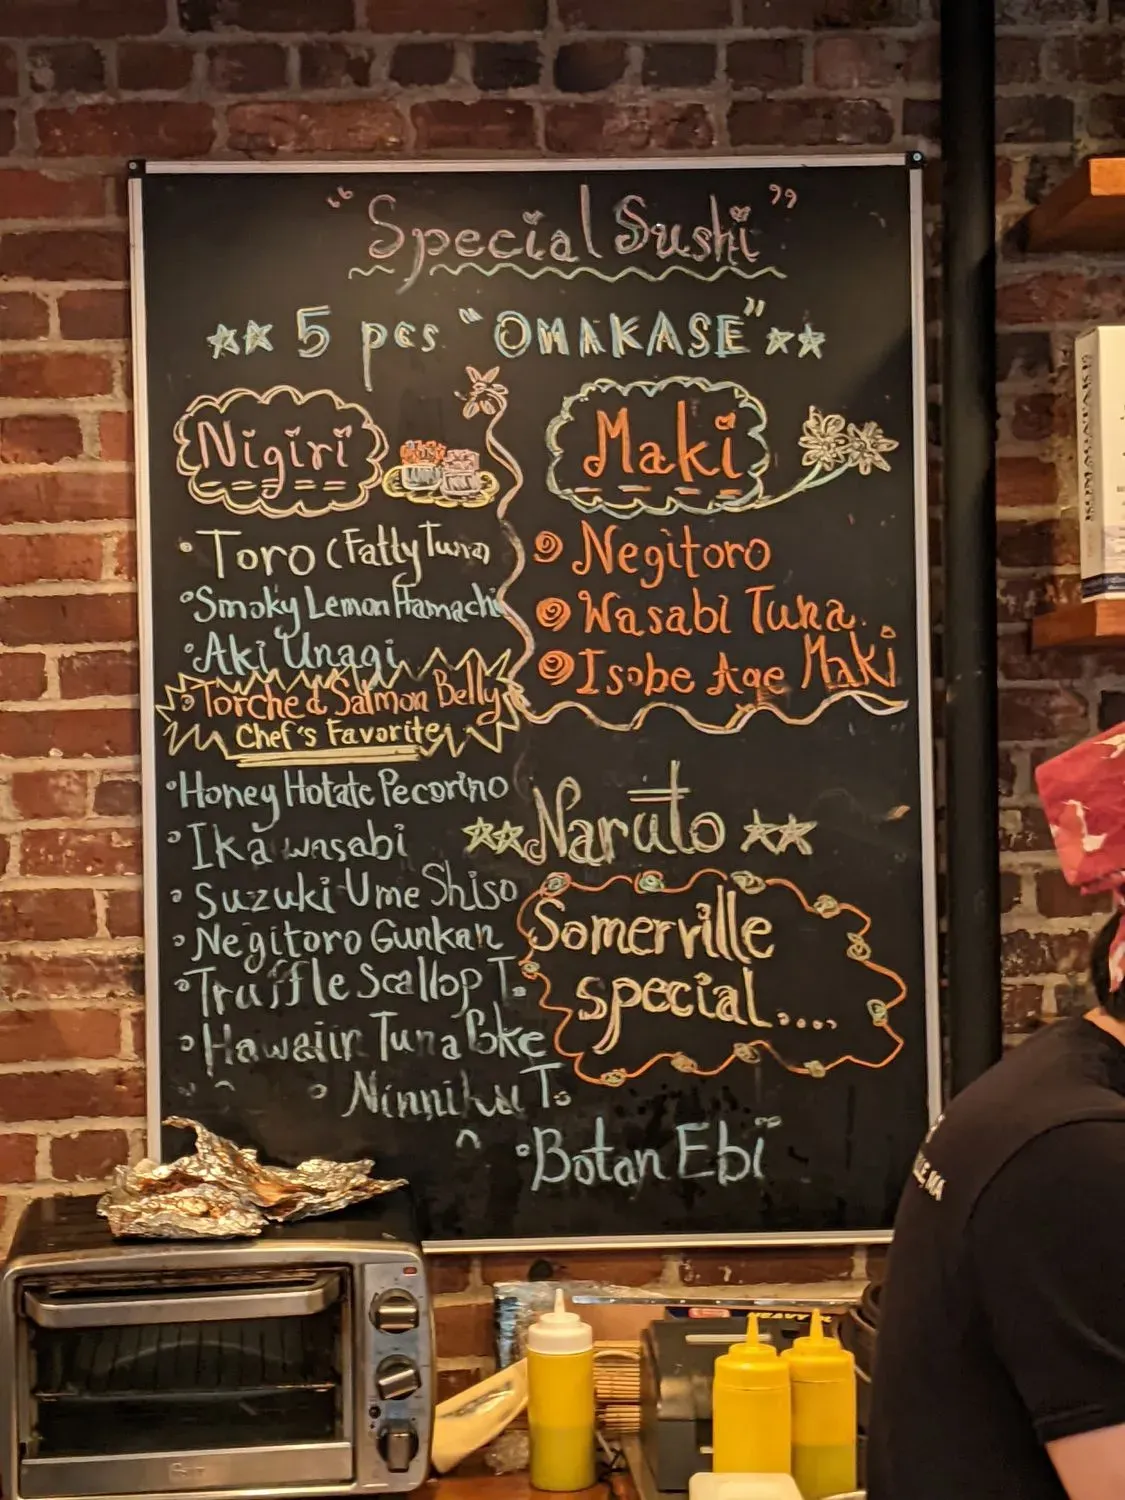 "Special Sushi"
5 pcs "OMAKASE"
Nigiri
• Toro (Fatty Tuna)
• Smoky Lemon Hamachi
• Aki Unagi
• Torched Salmon Belly
Chef's Favorite
• Honey Hotate Pecorino
• Ika wasabi
• Suzuki Ume Shiso
• Negitoro Gunkan
• Truffle Scallop T.
• Hawaiir Tuna Poke
• Ninniku T.
• Botan Ebi
Maki
Negitoro
Wasabi Tuna
Isobe Age Maki
Naruto
Somerville
special....